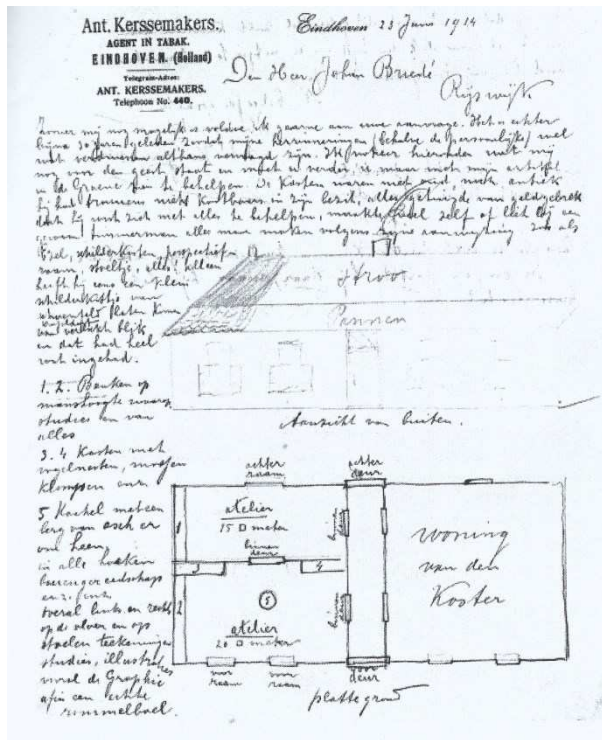 Ant. Kerssemakers.
AGENT IN TABAK.
EINDHOVEN. (Holland)
Telegram-Adres:
ANT. KERSSEMAKERS.
Telephoon No. 440.
Eindhoven 23 Juni 1914
Den Heer Johan Briedé
Rijswijk
Zoover mij nog mogelijk is voldoe ik gaarne aan uwe aanvrage. Het is echter
bijna 30 jaren geleden zoodat mijne herinneringen (behalve de persoonlijke) wel
niet verdwenen althans vervaagd zijn. Ik probeer hieronder wat mij
nog voor den geest staat en verder is maar met mijn artikel
in de Groene aan te behelpen. De Kasten waren niet oud, noch antiek
hij had trouwens niets kostbaars in zijn bezit, alles getuigde van geldgebrek
doch hij wist zich met alles te behelpen, maakte veel zelf of liet bij een
gewoon timmerman alles maar maken volgens zijne aanwijzing zoo als
Ezel, schilderkisten, perspectief
raam, stoeltje, alles! alleen
heeft hij eens een klein
schilderkistje van
platen
blik
en dat had heel
wat ingehad.
1. 2. Banken op
manshoogte waarop
studies en van
alles
3. 4 Kasten met
vogelnesten, mutsen
klompen enz.
5 Kachel met een
berg van asch er
om heen,
in alle hoeken
boerengereedschap
enz.
overal links en rechts
op de vloer en op
stoelen teekeningen
studies, illustraties
vooral de Graphic
afin een echte
rommelboel.
stroo
Pannen
Aanzicht van buiten.
achter
raam
achter
deur
atelier
15 □ meter
binnen
deur
binnen
deur
1
3
4
woning
van den
Koster
5
2
atelier
20 □ meter
binnen
deur
voor
raam
voor
raam
voor
deur
platte grond